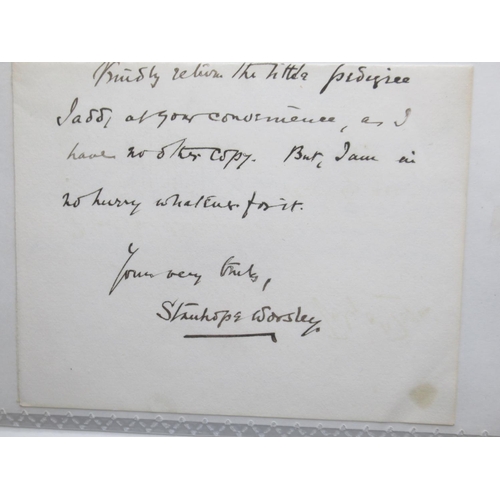 Kindly return the little pedigree
I add, at your convenience, as I
have no other copy. But, I am in
no hurry whatever for it.
Yours very truly,
Stanhope Worsley.